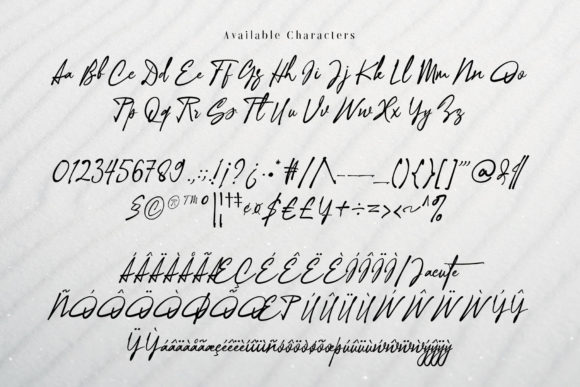 Available Characters
Aa Bb Cc Dd Ee Ff Gg Hh Ii Jj Kk Ll Mm Nn Oo
Pp Qq Rr Ss Tt Uu Vv Ww Xx Yy Zz
0123456789.,:;!¡?¿·•*#/\-–—_(){}[]'"@&¶
§©®™°|¦†‡¢¤$£€¥+÷=><~^%
ÁÂÄÀÅÃÆÇÉÊËÈÍÎÏÌ/Jacute
ÑÓÔÖÒØÕŒÞÚÛÜÙẂŴẄẀÝŶ
ŸỲáâäàåãæçéêëèíîïìñóôöòøõœþúûüùẃŵẅẁýŷÿỳ